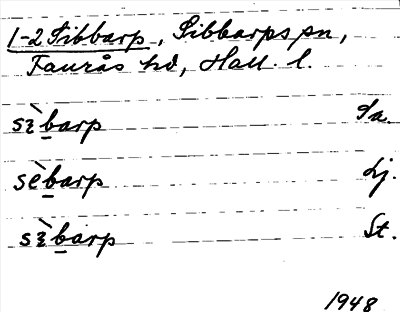 1-2 Sibbarp, Sibbarps sn,
Faurås hd, Hall. l.
sì̵barp Sa.
sèbarp Lj.
sì̵barp St.
1948